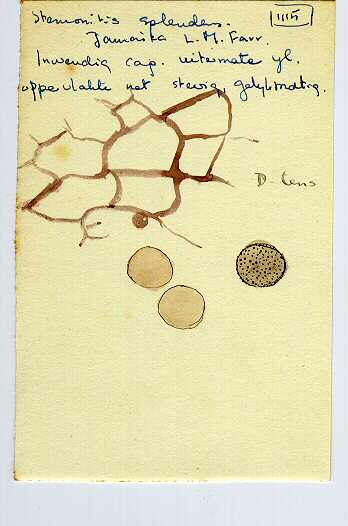 Stemonitis splendens.
1115
Jamaika L. M. Farr.
Inwendig cap. uitermate yl.
oppervlakte net stevig, gelijkmatig.
D-lens